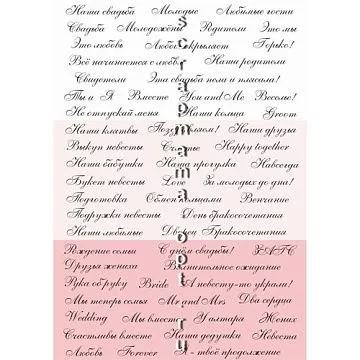 Наша свадьба Молодые Любимые гости
Свадьба Молодожёны Родители Это мы
Это любовь Любовь окрыляет Горько!
Всё начинается с любви Наши родители
Свидетели Эта свадьба пела и плясала!
Ты и Я Вместе You and Me Веселье!
Не отпускай меня Наши кольца Groom
Наши клятвы Поздравляем! Наши друзья
Выкуп невесты Счастье Happy together
Наши бабушки Наша прогулка Навсегда
Букет невесты Love За молодых до дна!
Подготовка Обмен кольцами Венчание
Подружки невесты День бракосочетания
Наши любимые Дворец Бракосочетания
Рождение семьи С днём свадьбы! ЗАГС
Друзья жениха Волнительное ожидание
Рука об руку Bride А невесту-то украли!
Мы теперь семья Mr and Mrs Два сердца
Wedding Мы вместе У алтаря Жених
Счастливы вместе Наши дедушки Невеста
Любовь Forever Я - твоё продолжение
scrapmama.opt.ru